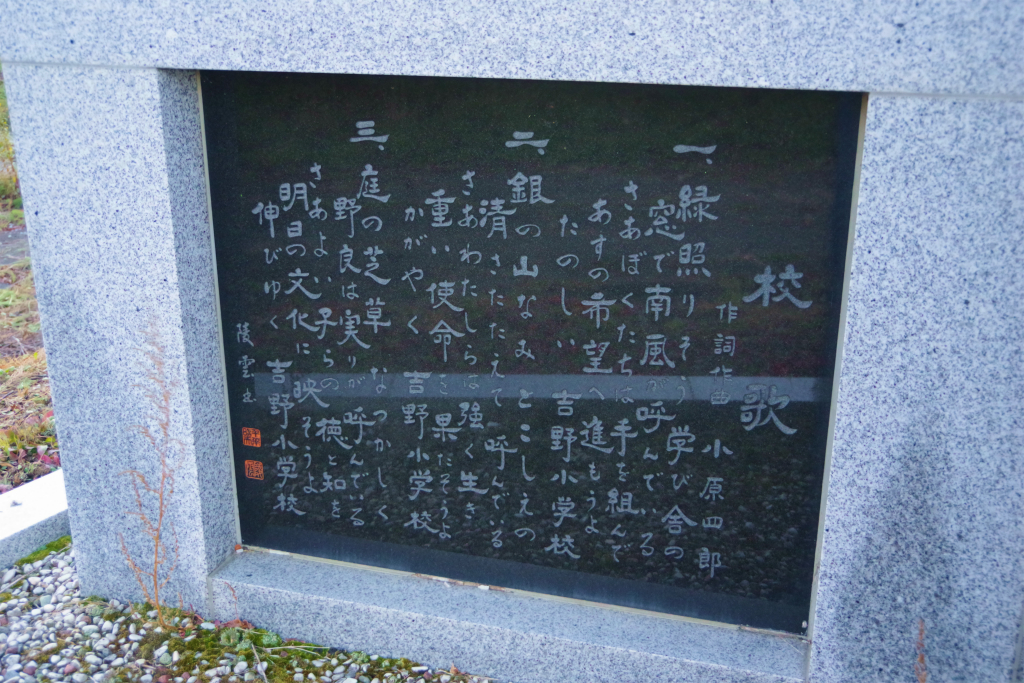 校歌
作詞作曲 小原四郎
一、緑照りそう 学び舎の
窓で南風が 呼んでいる
さあぼくたちは 手を組んで
あすの希望へ 進もうよ
たのしい 吉野小学校
二、銀の山なみ とこしえの
清さたたえて 呼んでいる
さあわたしらは 強く生き
重い使命を 果たそうよ
かがやく 吉野小学校
三、庭の芝草 なつかしく
野良は実りが 呼んでいる
さあよい子らの 徳と知を
明日の文化に 映そうよ
伸びゆく 吉野小学校
陵雲書